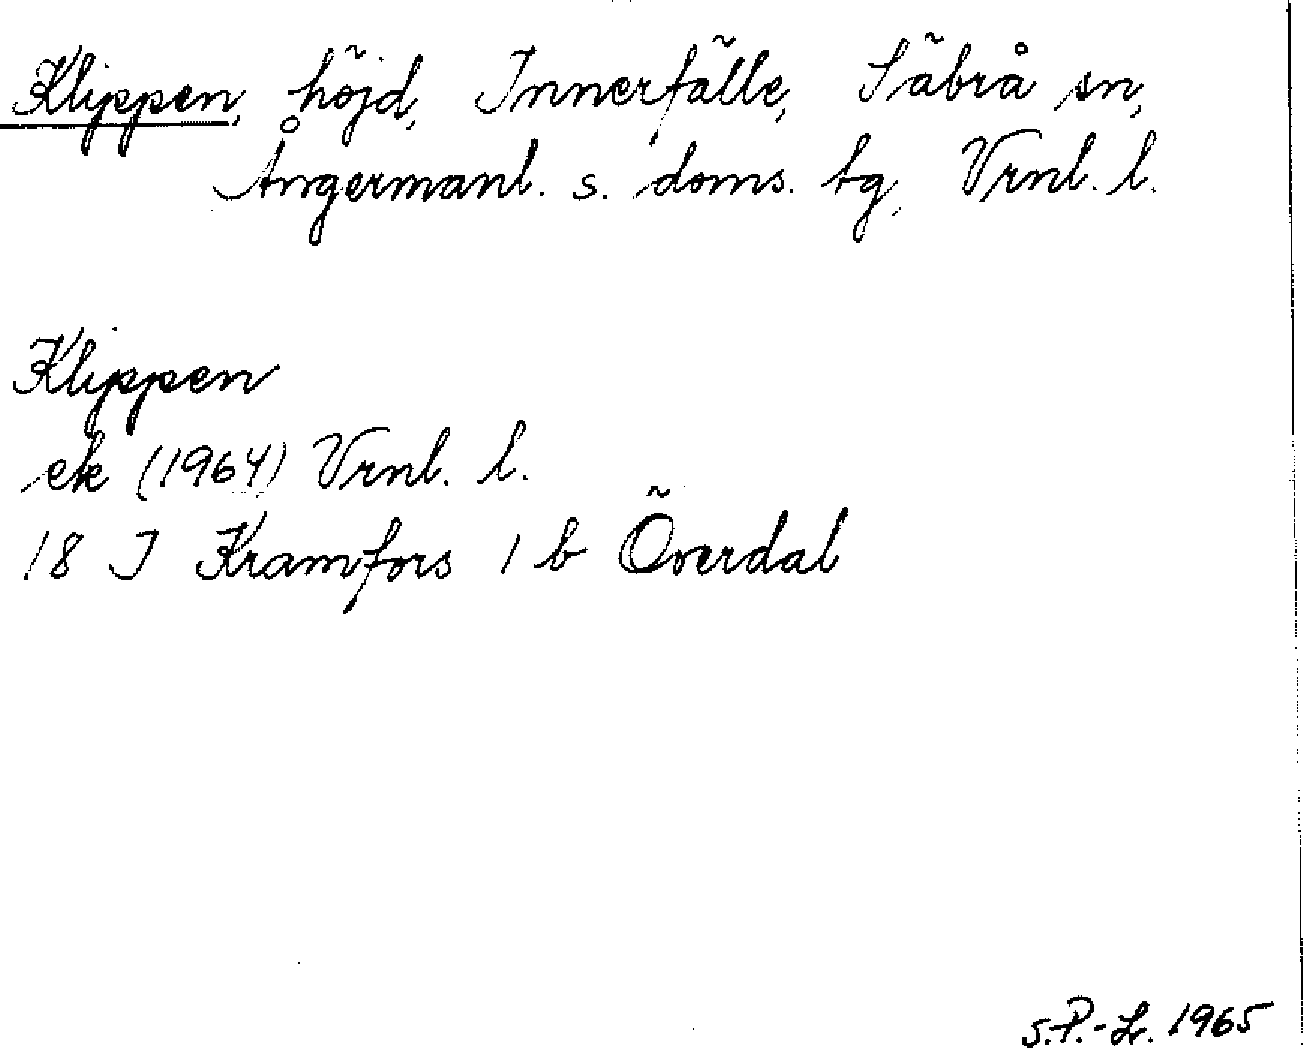 Klippen, höjd, Innerfälle, Säbrå sn,
Ångermanl. s. doms. tg, Vrnl. l.
Klippen
ek (1964) Vrnl. l.
18 I Kramfors 1 b Överdal
S.P.-L. 1965